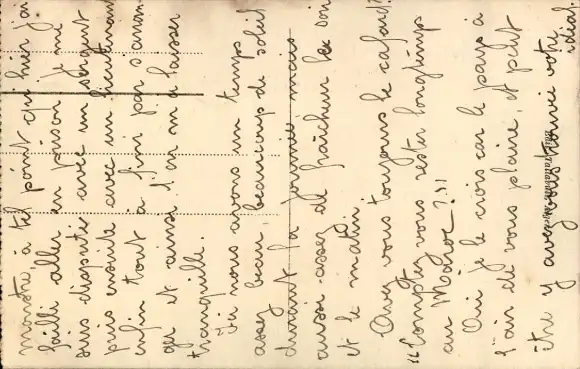 monstre à tel point qu'hier j'ai
failli aller en prison je me
suis disputé avec un sergent
puis ensuite avec un lieutenant
enfin tout a fini par s'arran
ger et ainsi l'on m'a laisser
tranquille.
Ici nous avons un temps
assez beau beaucoup de soleil
durant la journée mais
aussi assez de fraîcheur le soir
et le matin.
Avez vous toujours le cafard?
Comptez vous rester longtemps
au Maroc?
Oui je le crois car le pays à
l'air de vous plaire, et peut
être y avez vous trouvé votre
idéal.